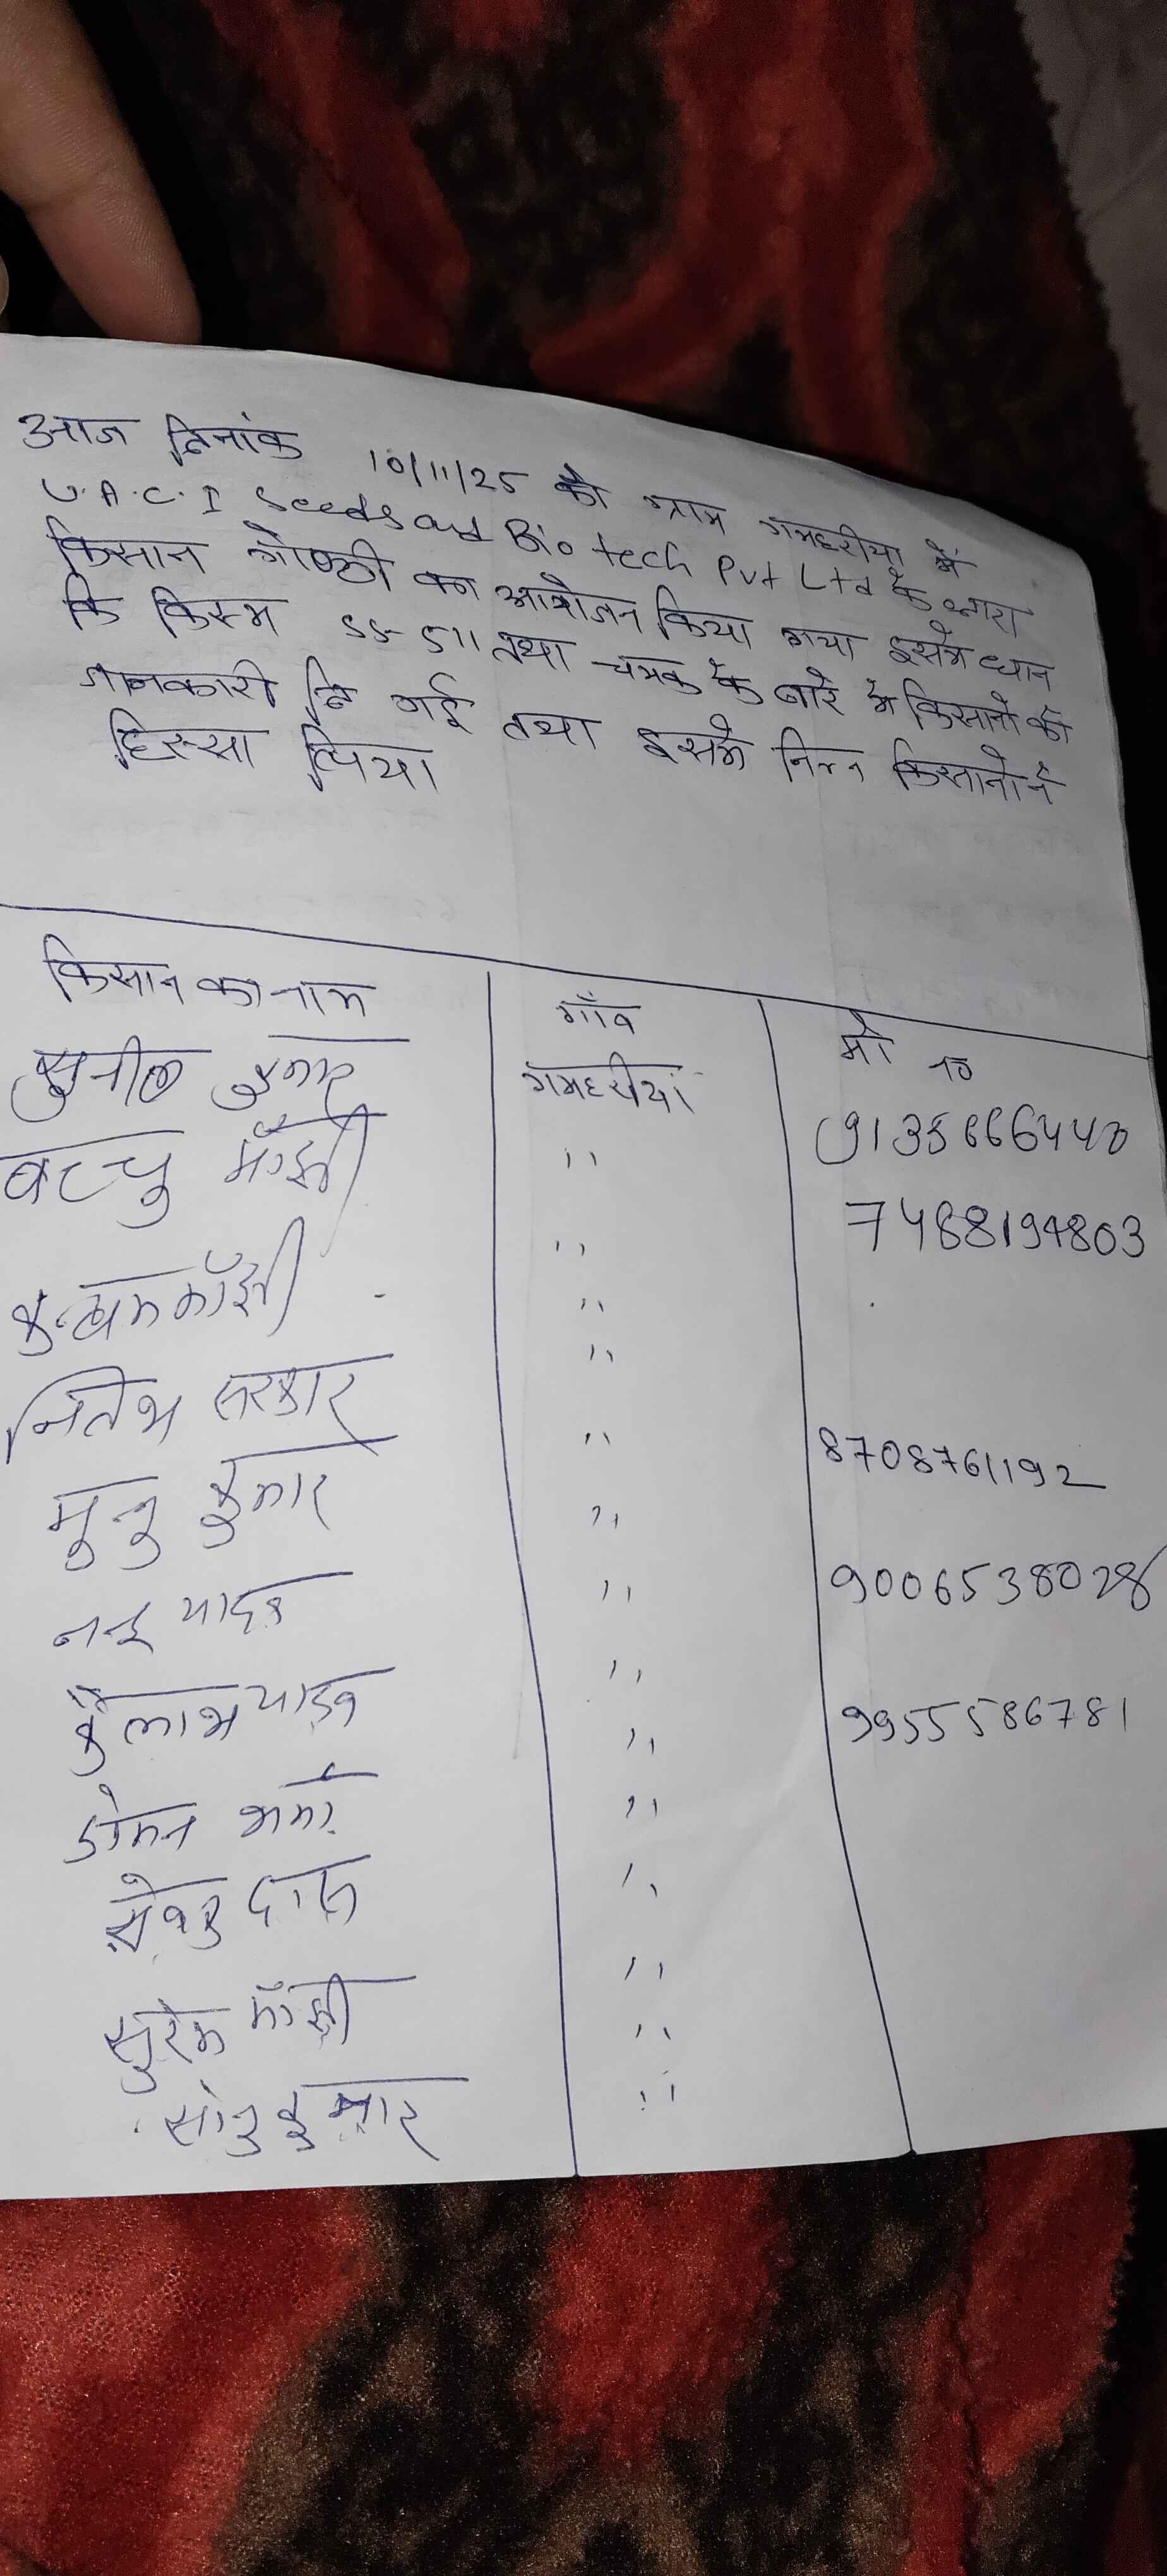 आज दिनांक 10/11/25 को ग्राम गमहरीया में
U.A.C.I Seeds and Bio tech Pvt Ltd के द्वारा
किसान गोष्ठी का आयोजन किया गया इसमे धान
कि किस्म SS-511 तथा चमक के बारे मे किसानो को
जानकारी दि गई तथा इसमे निम्न किसानो ने
हिस्सा लिया
किसान का नाम गाँव मो न०
सुनील कुमार गमहरीया
बच्चु माँझी ,, 7488194803
माँझी ,,
नितेश सरकार ,,
मुनु कुमार ,, 8708761192
यादव ,, 9006538028
कैलाश यादव ,, 9955586781
डोमन शर्मा ,,
सेवक दास ,,
सुरेश माँझी ,,
सोनु कुमार ,,